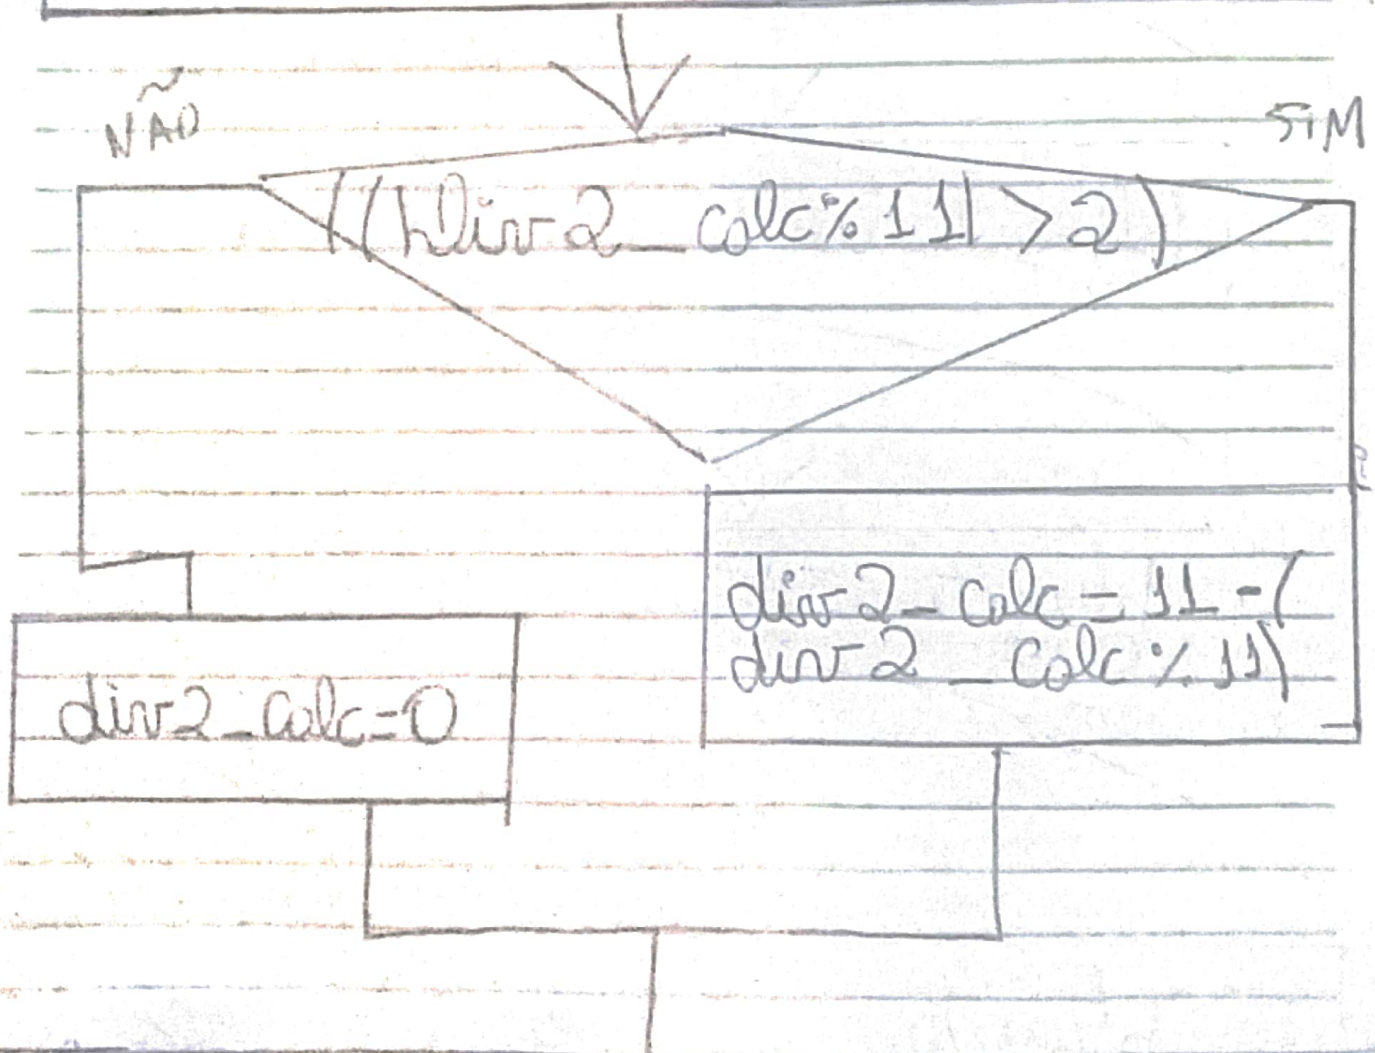 NÃO
SIM
((div2_calc%11)>2)
div2_calc=11-(
div2_calc%11)
div2_calc=0